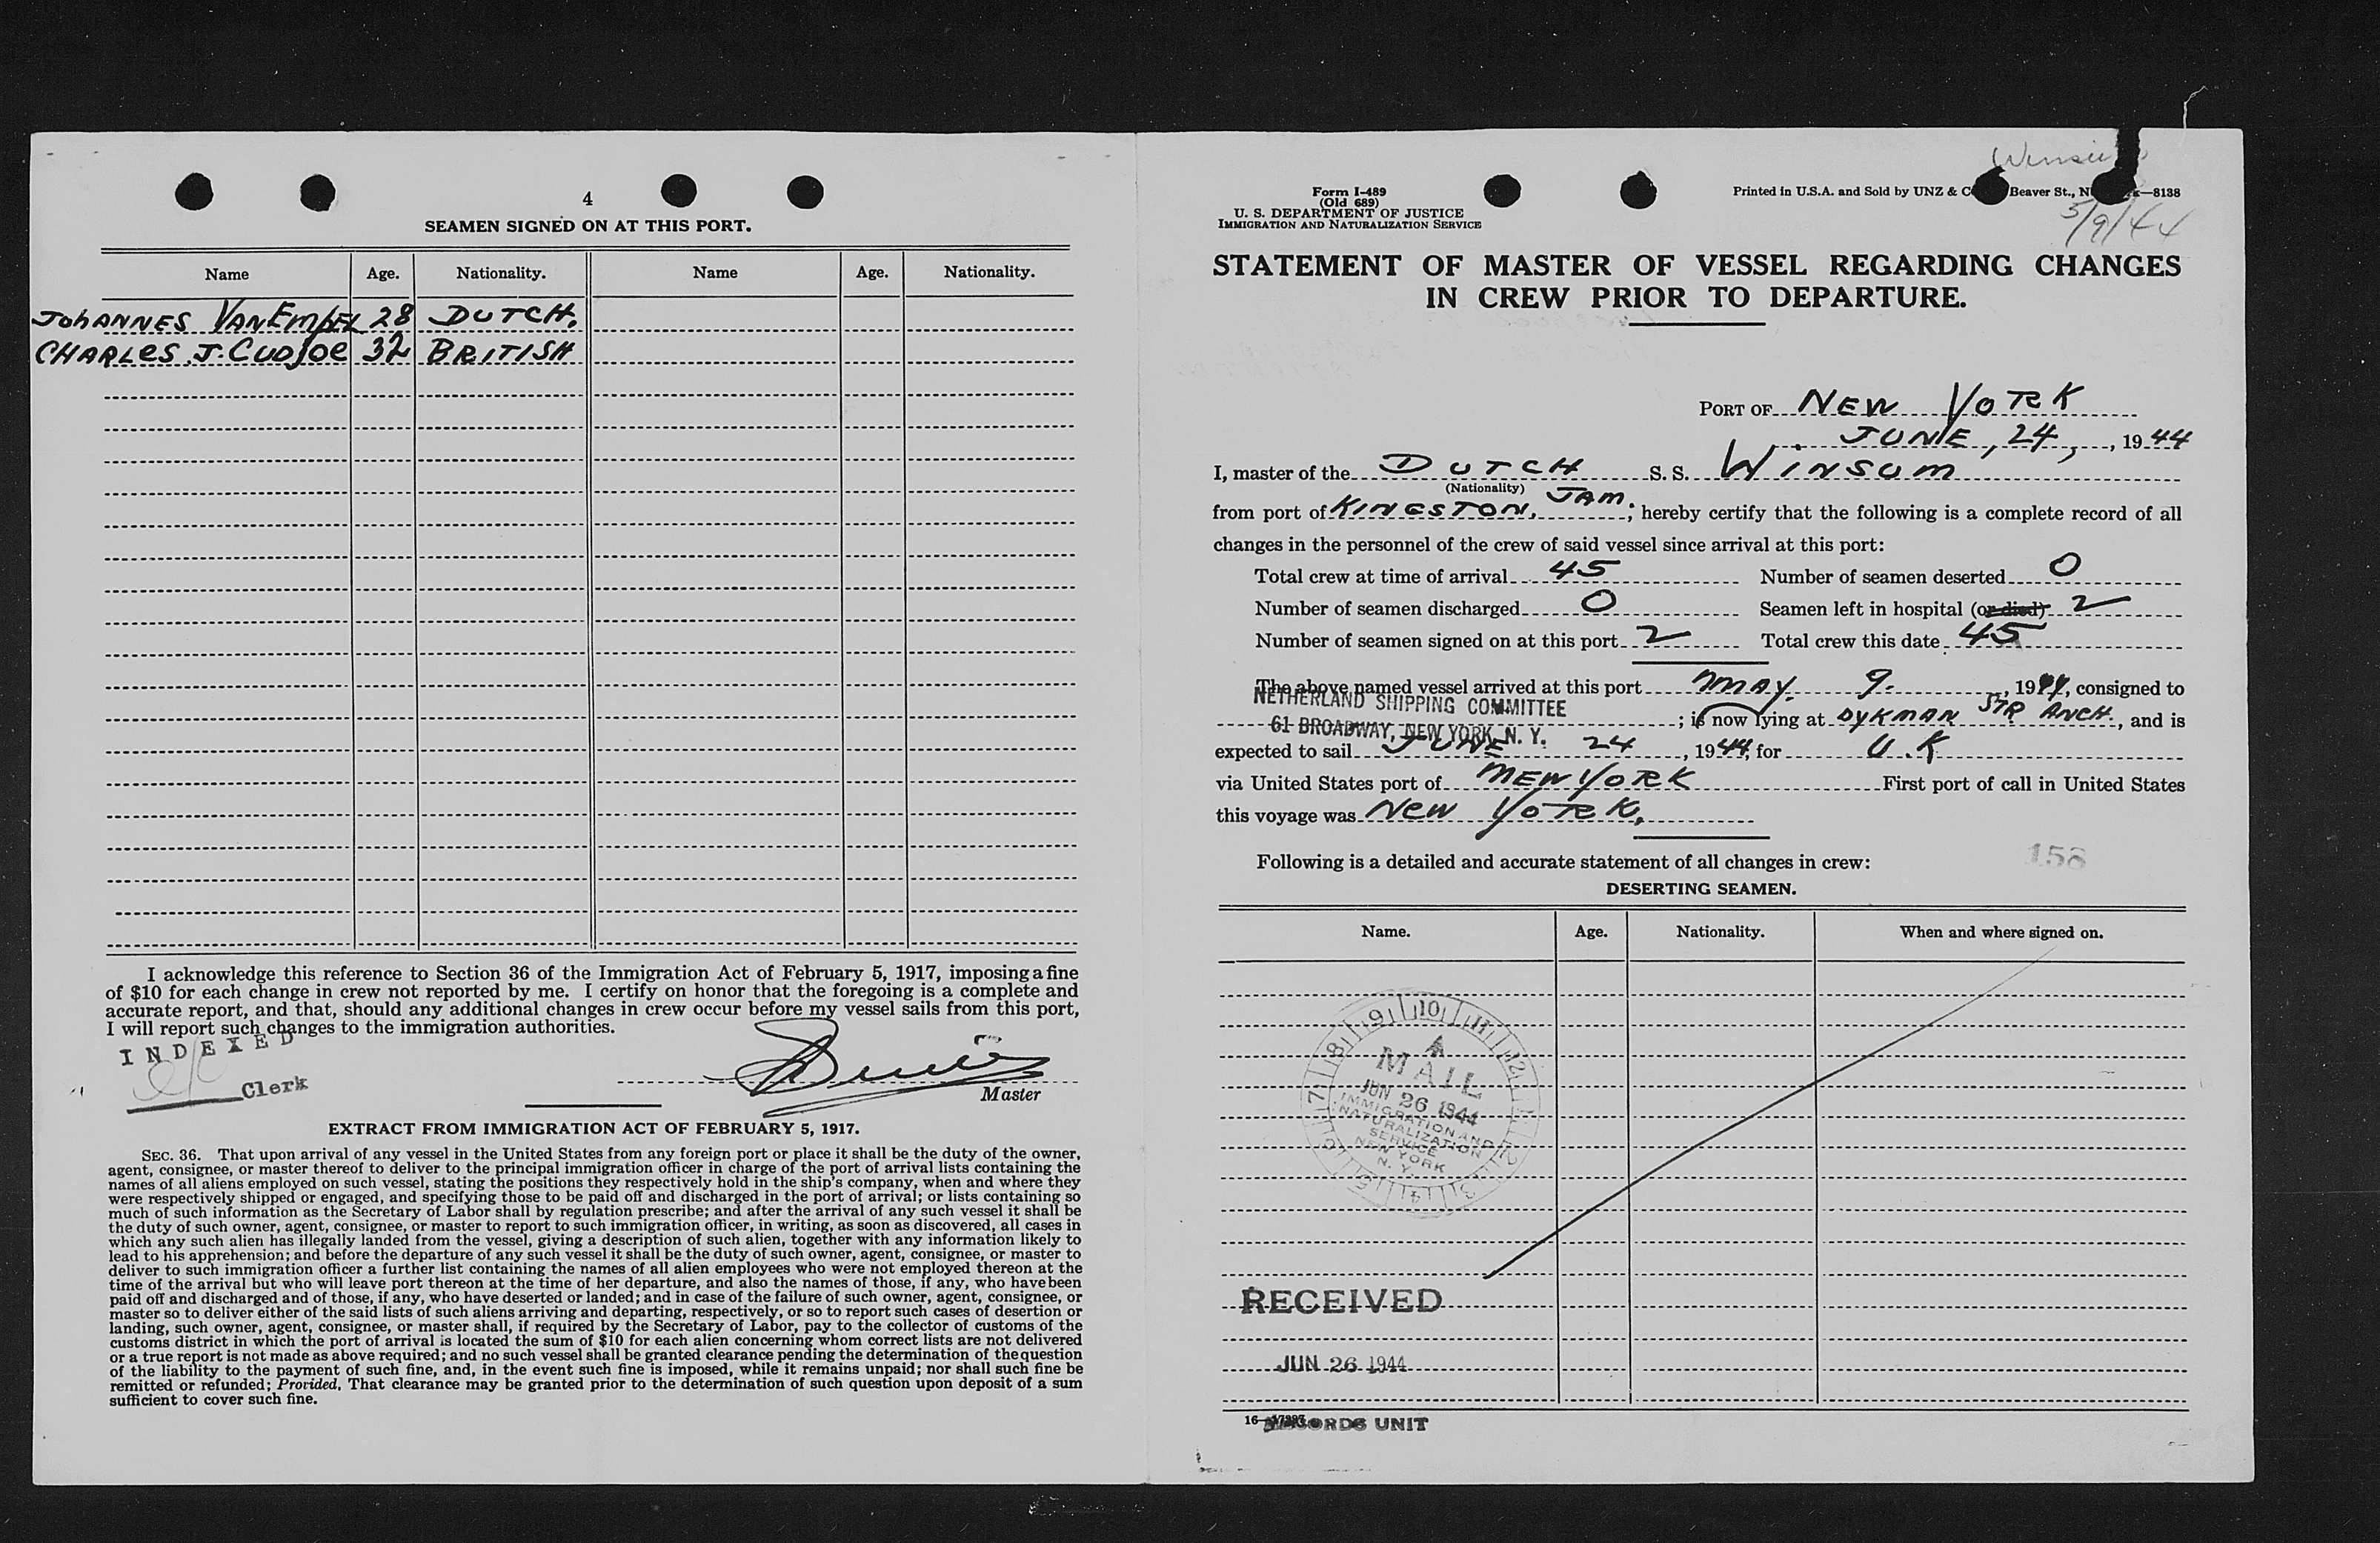 4
SEAMEN SIGNED ON AT THIS PORT.
Name Age. Nationality. Name Age. Nationality.
JOHANNES VAN EMPEL 28 DUTCH.
CHARLES. J. CUDJOE 32 BRITISH
I acknowledge this reference to Section 36 of the Immigration Act of February 5, 1917, imposing a fine
of $10 for each change in crew not reported by me. I certify on honor that the foregoing is a complete and
accurate report, and that, should any additional changes in crew occur before my vessel sails from this port,
I will report such changes to the immigration authorities.
INDEXED
Clerk
Master
EXTRACT FROM IMMIGRATION ACT OF FEBRUARY 5, 1917.
SEC. 36. That upon arrival of any vessel in the United States from any foreign port or place it shall be the duty of the owner,
agent, consignee, or master thereof to deliver to the principal immigration officer in charge of the port of arrival lists containing the
names of all aliens employed on such vessel, stating the positions they respectively hold in the ship's company, when and where they
were respectively shipped or engaged, and specifying those to be paid off and discharged in the port of arrival; or lists containing so
much of such information as the Secretary of Labor shall by regulation prescribe; and after the arrival of any such vessel it shall be
the duty of such owner, agent, consignee, or master to report to such immigration officer, in writing, as soon as discovered, all cases in
which any such alien has illegally landed from the vessel, giving a description of such alien, together with any information likely to
lead to his apprehension; and before the departure of any such vessel it shall be the duty of such owner, agent, consignee, or master to
deliver to such immigration officer a further list containing the names of all alien employees who were not employed thereon at the
time of the arrival but who will leave port thereon at the time of her departure, and also the names of those, if any, who have been
paid off and discharged and of those, if any, who have deserted or landed; and in case of the failure of such owner, agent, consignee, or
master so to deliver either of the said lists of such aliens arriving and departing, respectively, or so to report such cases of desertion or
landing, such owner, agent, consignee, or master shall, if required by the Secretary of Labor, pay to the collector of customs of the
customs district in which the port of arrival is located the sum of $10 for each alien concerning whom correct lists are not delivered
or a true report is not made as above required; and no such vessel shall be granted clearance pending the determination of the question
of the liability to the payment of such fine, and, in the event such fine is imposed, while it remains unpaid; nor shall such fine be
remitted or refunded; Provided, That clearance may be granted prior to the determination of such question upon deposit of a sum
sufficient to cover such fine.
5/9/44
Form I-489
(Old 689)
U. S. DEPARTMENT OF JUSTICE
IMMIGRATION AND NATURALIZATION SERVICE
Printed in U.S.A. and Sold by UNZ & C Beaver St., N —8138
STATEMENT OF MASTER OF VESSEL REGARDING CHANGES
IN CREW PRIOR TO DEPARTURE.
PORT OF NEW YORK
JUNE, 24, , 1944
I, master of the DUTCH S. S. WINSUM
(Nationality)
from port of KINGSTON, JAM; hereby certify that the following is a complete record of all
changes in the personnel of the crew of said vessel since arrival at this port:
Total crew at time of arrival 45 Number of seamen deserted 0
Number of seamen discharged 0 Seamen left in hospital (or died) 2
Number of seamen signed on at this port 2 Total crew this date 45
The above named vessel arrived at this port MAY. 9. , 1944, consigned to
NETHERLAND SHIPPING COMMITTEE
61 BROADWAY, NEW YORK, N. Y. ; is now lying at DYKMAN STR ANCH., and is
expected to sail JUNE 24 , 1944, for U.K.
via United States port of NEW YORK First port of call in United States
this voyage was NEW YORK.
Following is a detailed and accurate statement of all changes in crew:
158
DESERTING SEAMEN.
Name. Age. Nationality. When and where signed on.
MAIL
JUN 26 1944
IMMIGRATION AND
NATURALIZATION
SERVICE
NEW YORK
N. Y.
RECEIVED
JUN 26 1944
RECORDS UNIT